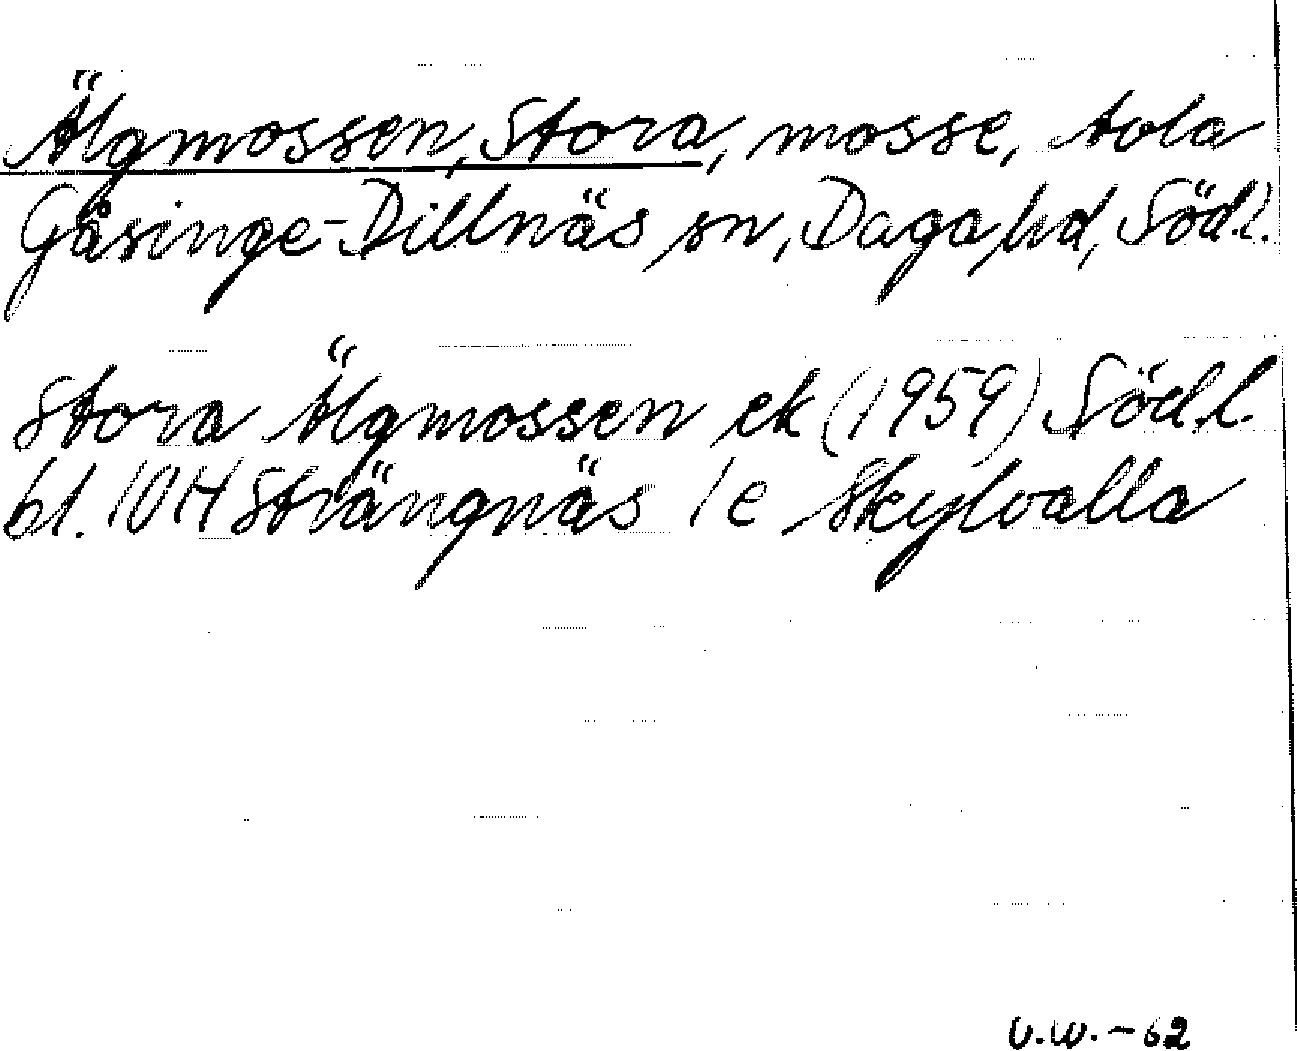 Älgmossen, Stora, mosse, Avla
Gåsinge-Dillnäs sn, Daga hd, Södl.
Stora Älgmossen ek (1959) Södl.
bl. 10H Strängnäs 1e Skylvalla
U.W. - 62